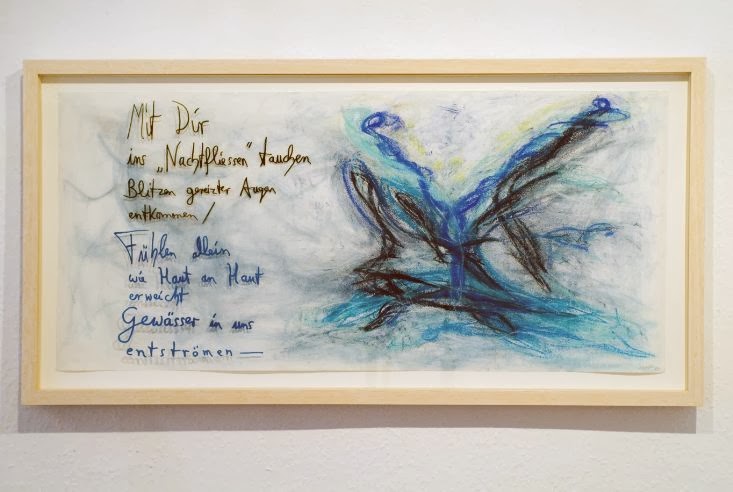 Mit Dir
ins „Nachtfliessen" tauchen
Blitzen gereizter Augen
entkommen/
Fühlen allein
wie Haut an Haut
erweicht
Gewässer in uns
entströmen —